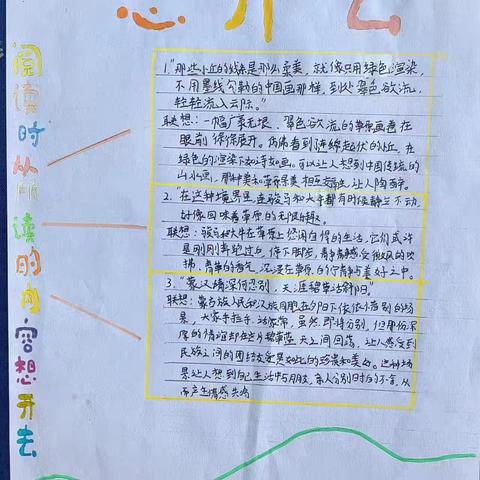 想开去
阅读时从所读的内容想开去
1."那些小丘的线条是那么柔美,就像只用绿色渲染,
不用墨线勾勒的中国画那样,到处翠色欲流,
轻轻流入云际。"
联想:一幅广袤无垠、翠色欲流的草原画卷在
眼前徐徐展开。仿佛看到连绵起伏的小丘,在
绿色的渲染下如诗如画。可以让人想到中国传统的
山水画,那种美和草原柔美相互交融,让人陶醉。
2."在这种境界里,连骏马和大牛都有时候静立不动,
好像回味着草原的无限乐趣。
联想:骏马和大牛在草原上悠闲自得的生活,它们或许
是刚刚奔跑过后,停下脚步,静静感受微风的吹
拂,青草的香气,沉浸在草原的宁静与美好之中。
3."蒙汉情深何忍别,天涯碧草话斜阳。"
联想:蒙古族人民和汉族同胞在夕阳下依依不舍别的场
景,大家手拉手,话家常,虽然即将分别,但那份深
厚的情谊却在碧草蓝天之间回荡,让人感受到
民族之间的团结友爱是如此的珍贵和美好。这种场
景让人想到自己生活中与朋友,亲人分别时的不舍,从
而产生情感共鸣